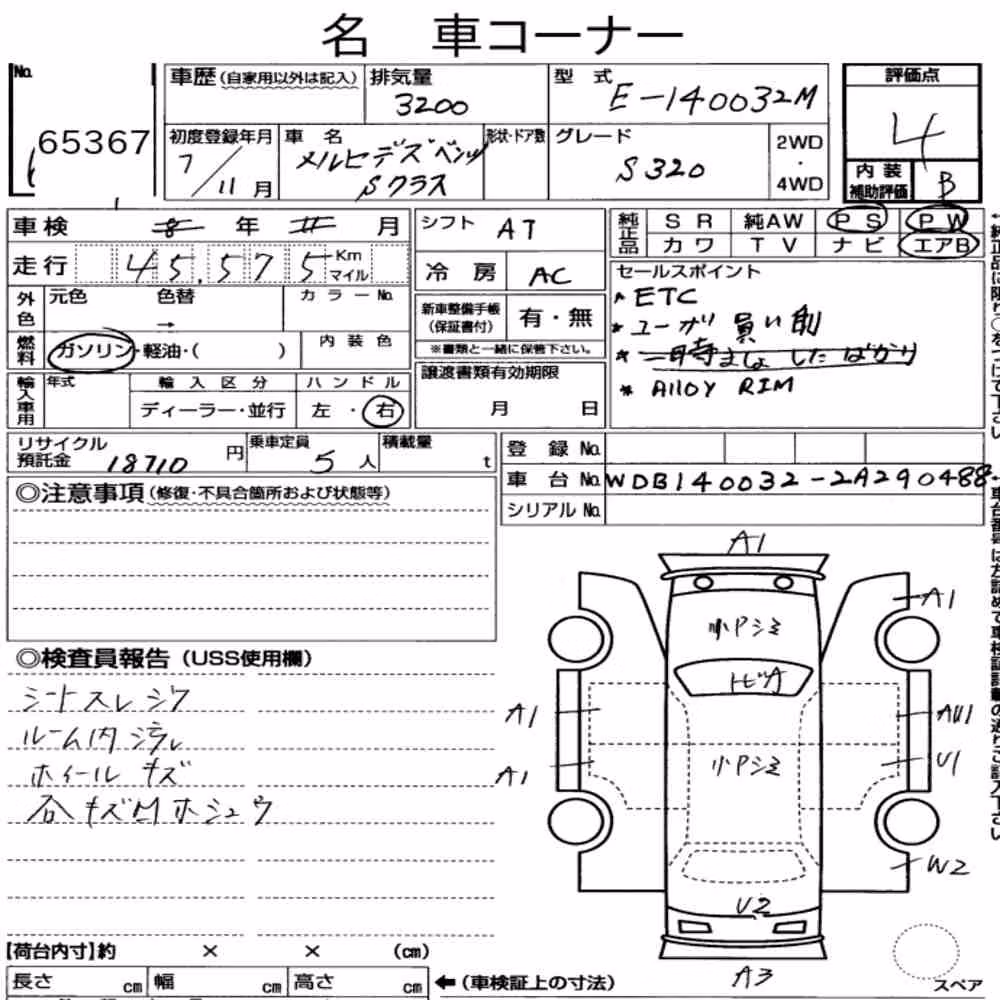 名 車コーナー
No.
65367
車歴(自家用以外は記入)
排気量
3200
型式
E-140032M
評価点
4
初度登録年月
7/11月
車名
メルセデスベンツ
Sクラス
形状・ドア数
グレード
S320
2WD
・
4WD
内装
補助評価
B
車検 8 年 11 月
シフト
AT
純正品
SR
純AW
PS
PW
カワ
TV
ナビ
エアB
走行 45,575 Km マイル
冷房
AC
セールスポイント
* ETC
* ユーザー買い
*
* Alloy RIM
外色
元色
色替
→
カラーNo.
新車整備手帳
(保証書付)
有・無
※書類と一緒に保管下さい。
燃料
ガソリン・軽油・( )
内装色
輸入車用
年式
輸入区分
ディーラー・並行
ハンドル
左・右
譲渡書類有効期限
月 日
リサイクル
預託金 18710 円
乗車定員
5人
積載量
t
登録No.
車台No. WDB140032-2A290488
シリアルNo.
◎注意事項(修復・不具合箇所および状態等)
◎検査員報告(USS使用欄)
シートスレシワ
ルーム内汚レ
ホイールキズ
各キズ凹ホシュウ
A1
A1
小Pシミ
トビA
A1
AU1
小Pシミ
A1
U1
W2
U2
A3
スペア
【荷台内寸】約 × × (cm)
長さ cm
幅 cm
高さ cm
←(車検証上の寸法)